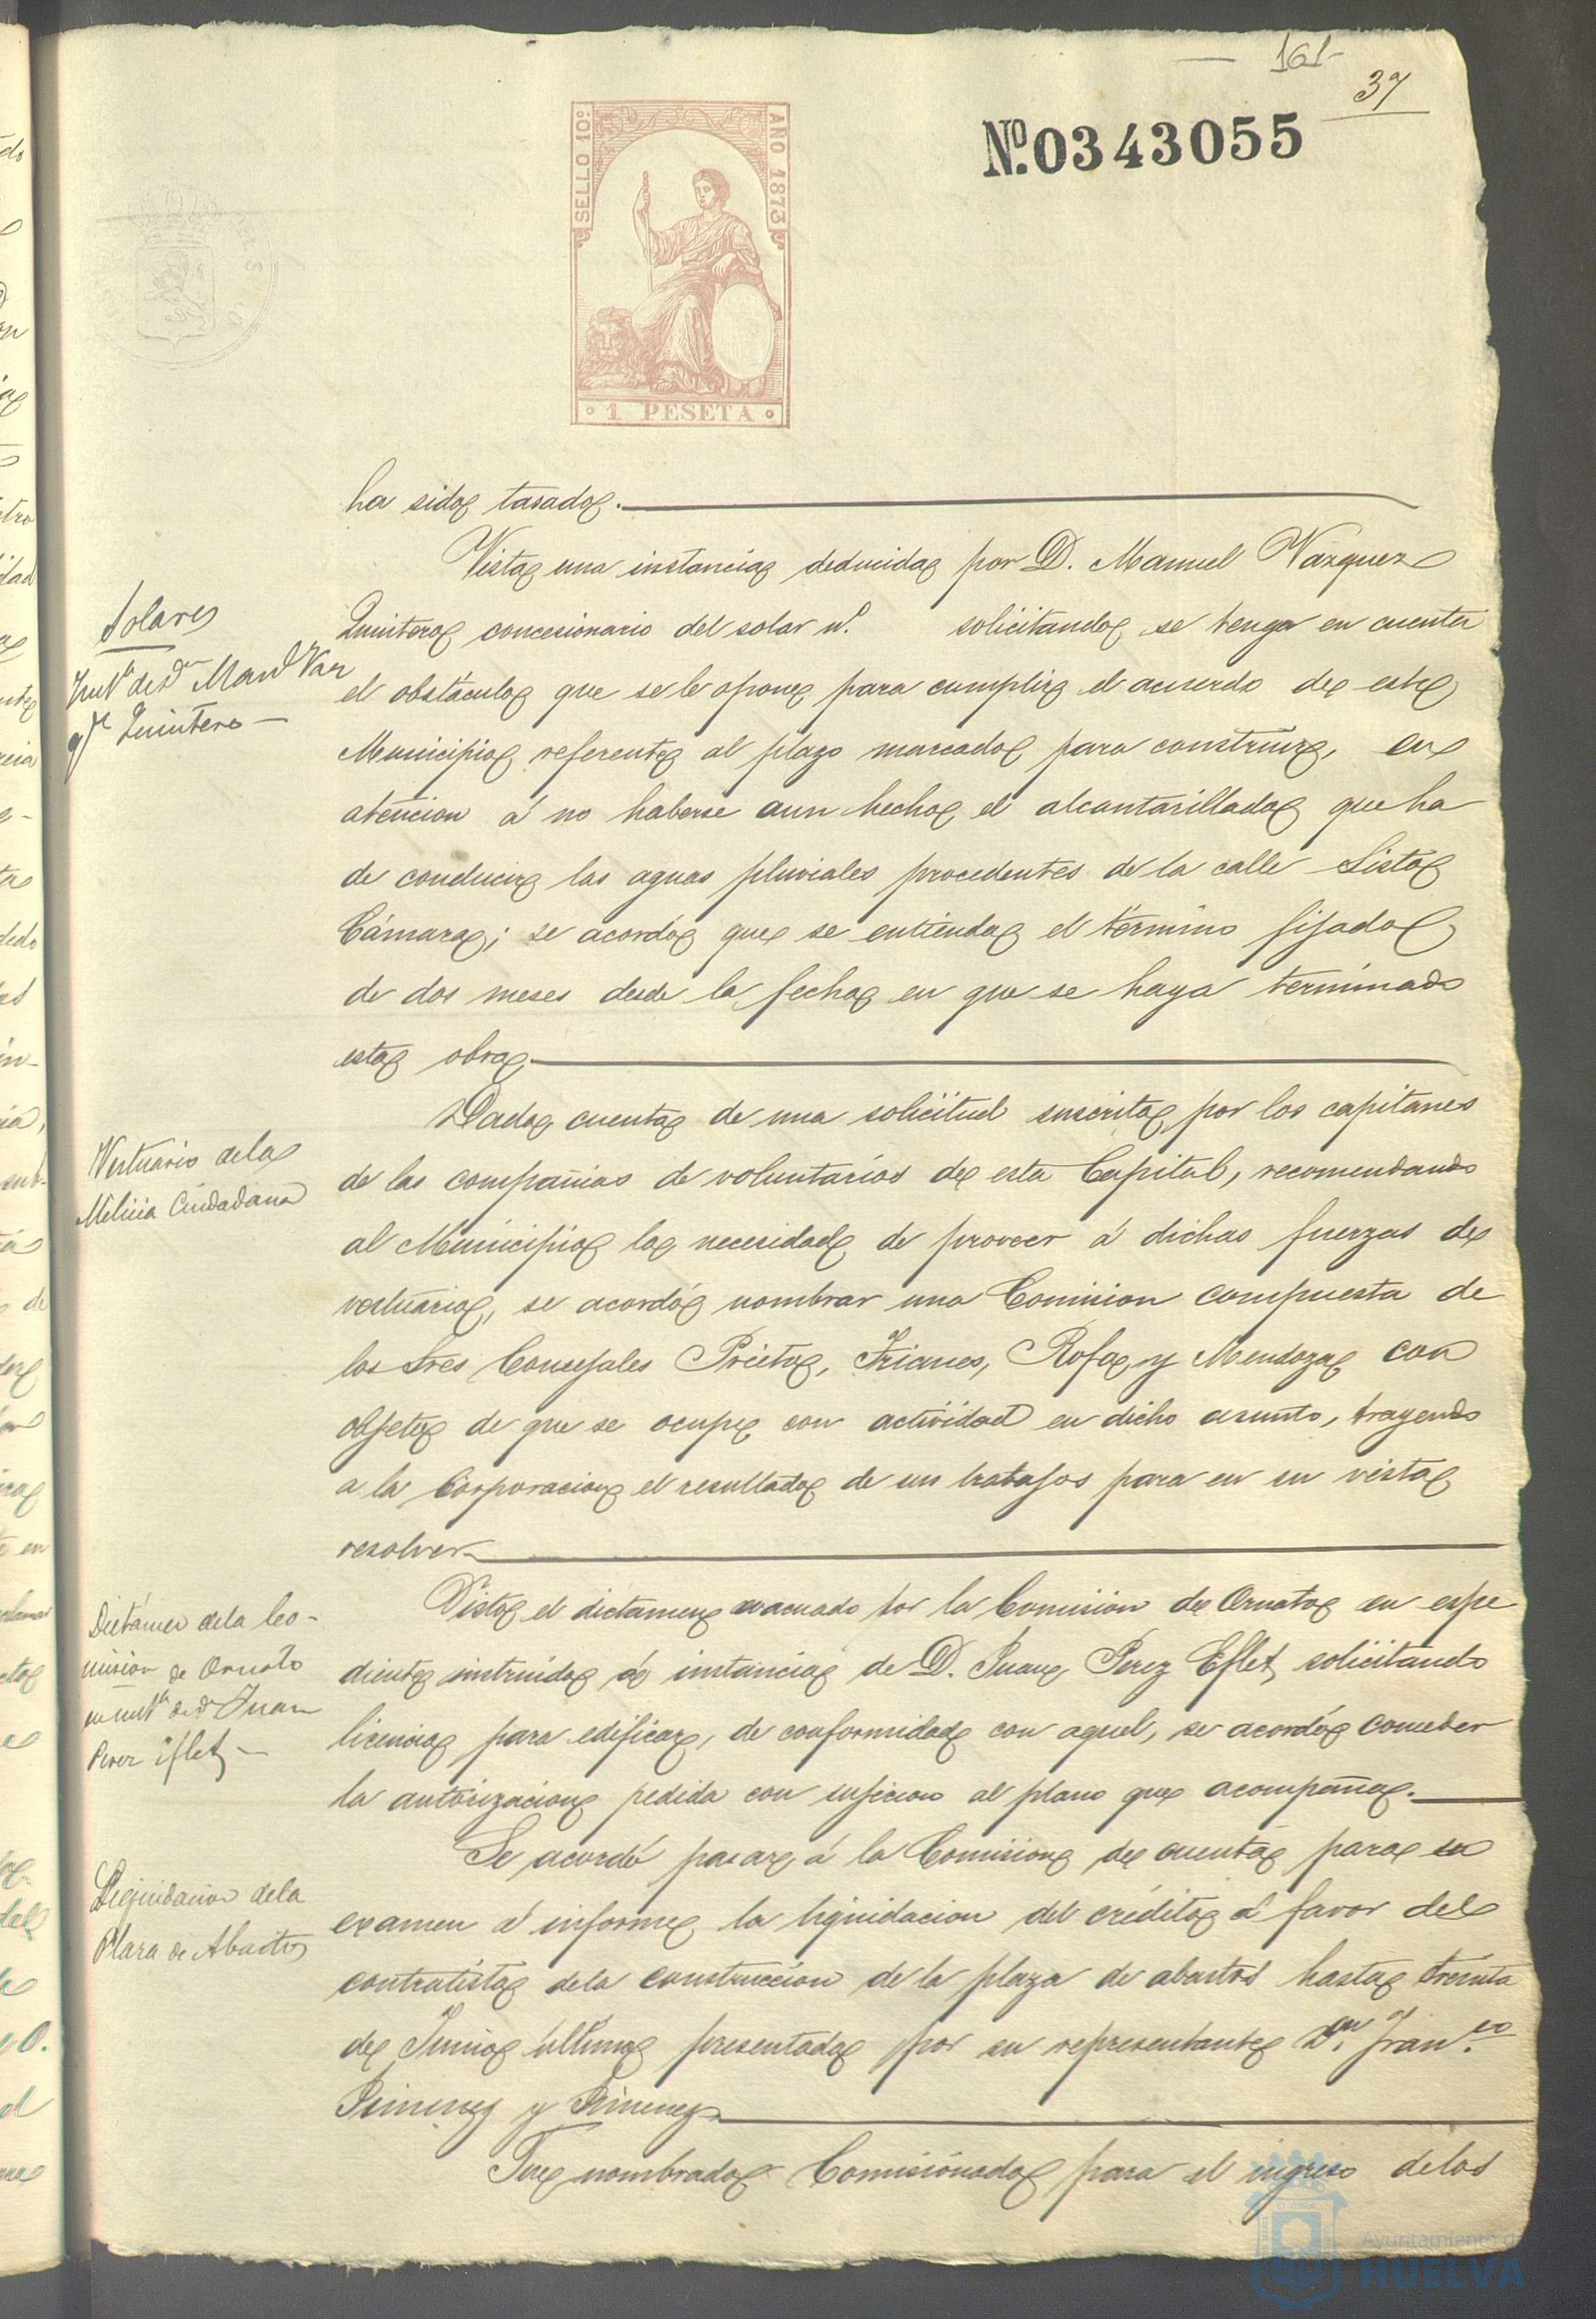 161-
37
Nº.0343055
SELLO 10º
AÑO 1873
1 PESETA
ha sido tasado.
Solares
Inst.ª de Dn Man.l Vaz
q.z Quintero
Vista una instancia deducida por D. Manuel Vazquez
Quintero concesionario del solar n.º solicitando se tenga en cuenta
el obstáculo que se le opone para cumplir el acuerdo de este
Municipio referente al plazo marcado para construir, en
atencion á no haberse aun hecho el alcantarillado que ha
de conducir las aguas pluviales procedentes de la calle Sisto
Cámara; se acordó que se entienda el término fijado
de dos meses desde la fecha en que se haya terminado
esta obra.
Vestuario de la
Milicia Ciudadana
Dada cuenta de una solicitud suscrita por los capitanes
de las compañias de voluntarios de esta Capital, recomendando
al Municipio la necesidad de proveer á dichas fuerzas de
vestuario, se acordó nombrar una Comision compuesta de
los Sres Concejales Prieto, Trianes, Rofa y Mendoza con
objeto de que se ocupe con actividad en dicho asunto, trayendo
a la Corporacion el resultado de sus trabajos para en su vista
resolver.
Dictámen de la Co-
mision de Ornato
en inst.ª de Dn Juan
Perez Eflet
Visto el dictamen evacuado por la Comision de Ornato en espe
diente instruido á instancia de D. Juan Perez Eflet solicitando
licencia para edificar, de conformidad con aquel, se acordó conceder
la autorizacion pedida con sujecion al plano que acompaña.
Liquidacion de la
Plaza de Abastos
Se acordó pasar á la Comision de cuentas para su
examen é informe la liquidacion del crédito á favor del
contratista de la construccion de la plaza de abastos hasta treinta
de Junio último presentada por su representante Dn. Fran.co
Jimenez y Jimenez
Fue nombrado Comisionado para el ingreso de los
Ayuntamiento de
HUELVA